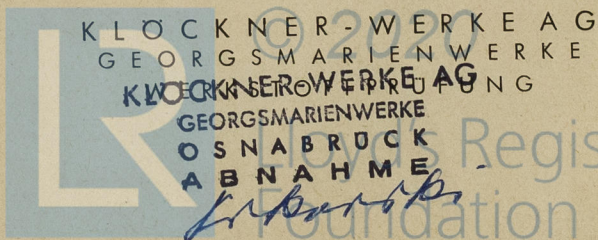 KLÖCKNER-WERKE AG
GEORGSMARIENWERKE
WERKSTOFFPRÜFUNG
KLÖCKNER-WERKE AG
GEORGSMARIENWERKE
OSNABRÜCK
ABNAHME
LR © 2020
Lloyd's Regis
Foundation